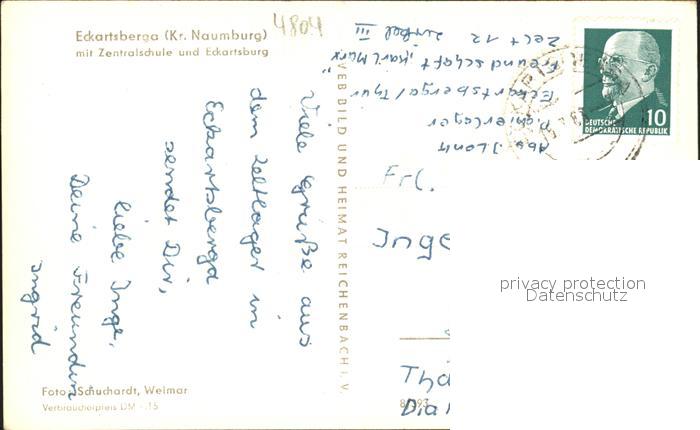 Eckartsberga (Kr. Naumburg)
mit Zentralschule und Eckartsburg
4804
Viele Grüße aus
dem Zeltlager in
Eckartsberga
sendet Dir,
liebe Inge,
Deine Freundin
Ingrid
Foto: Schuchardt, Weimar
Verbraucherpreis DM -.15
VEB BILD UND HEIMAT REICHENBACH I. V.
Abs. I.
Pionierlager
Eckartsberga/Thür
Freundschaft "Karl Marx"
Zelt 12 Zirkel III
DEUTSCHE
DEMOKRATISCHE REPUBLIK
10
Frl.
Inge
privacy protection
Datenschutz